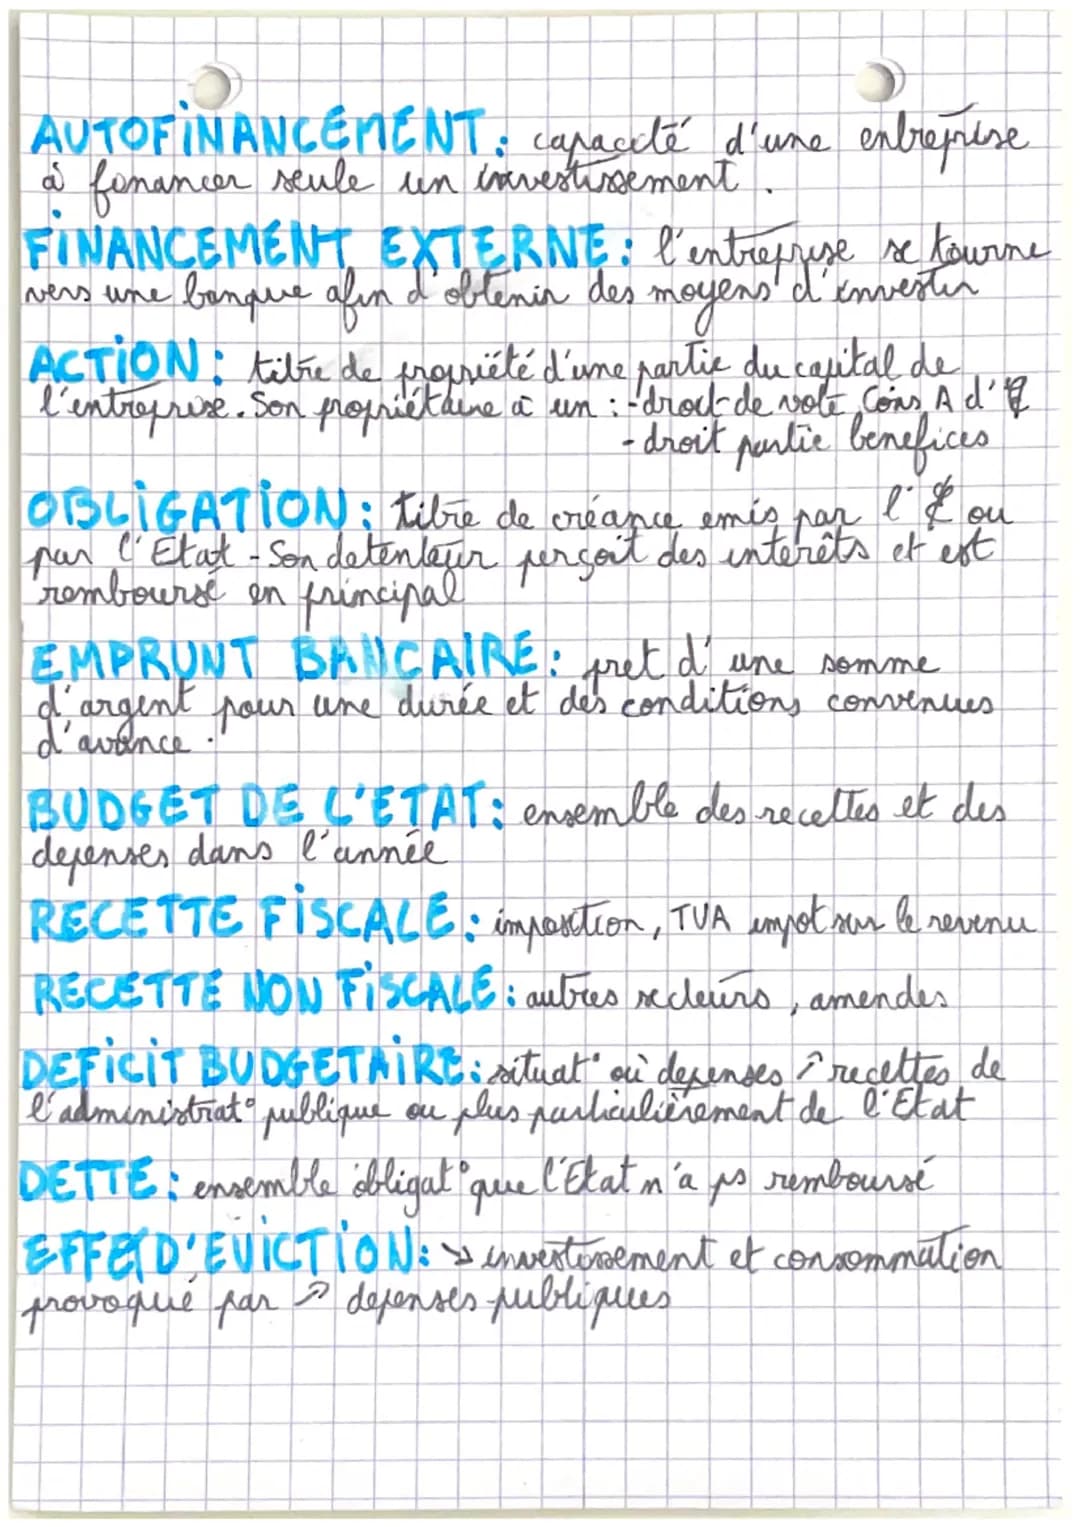 AUTOFINANCEMENT : capacité d'une entreprise
à financer seule un investissement.
FINANCEMENT EXTERNE : l'entreprise se tourne
vers une banque afin d'obtenir des moyens d'investir
ACTION : titre de propriété d'une partie du capital de
l'entreprise. Son propriétaire à un : - droit de vote Cons A d'E
- droit partie benefices
OBLIGATION : titre de créance emis par l'E ou
par l'Etat - Son detenteur perçoit des interêts et est
remboursé en principal
EMPRUNT BANCAIRE : pret d'une somme
d'argent pour une durée et des conditions convenues
d'avance.
BUDGET DE L'ETAT : ensemble des recettes et des
depenses dans l'année
RECETTE FISCALE : imposition, TVA impot sur le revenu
RECETTE NON FISCALE : autres secteurs, amendes
DEFICIT BUDGETAIRE : situat° où depenses ↗ recettes de
l'administrat° publique ou plus particulièrement de l'Etat
DETTE : ensemble obligat° que l'Etat n'a ps remboursé
EFFET D'EVICTION : ↘ investissement et consommation
provoqué par ↗ depenses publiques